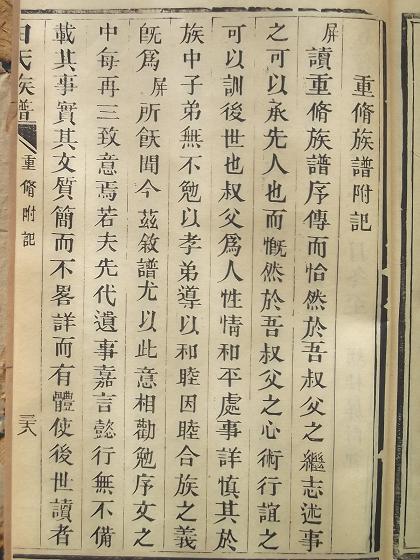 重脩族譜附記
屏讀重脩族譜序傳而恰然於吾叔父之繼志述事
之可以承先人也而慨然於吾叔父之心術行誼之
可以訓後世也叔父爲人性情和平處事詳慎其於
族中子弟無不勉以孝弟導以和睦因睦合族之義
旣爲屏所飫聞今茲敘譜尤以此意相勸勉序文之
中每再三致意焉若夫先代遺事嘉言懿行無不備
載其事實其文質簡而不畧詳而有體使後世讀者
氏族譜
重脩附記
二八